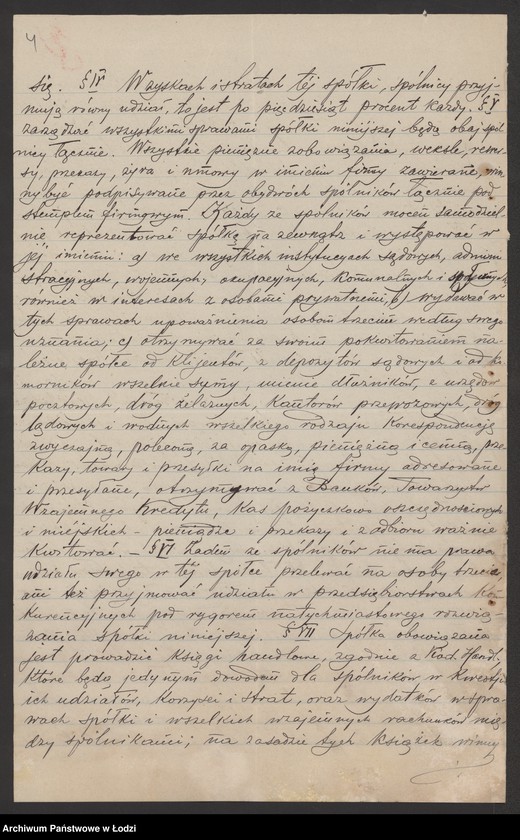 4
się. § IV W zyskach i stratach tej spółki, spólnicy przyj-
mują równy udział, to jest po pięćdziesiąt procent każdy. § V
zarządzać wszystkimi sprawami spółki niniejszej będą obaj spól-
nicy łącznie. Wszystkie pieniężne zobowiązania, weksle, rewer-
sy, przekazy, żyra i umowy w imieniu firmy zawierane, win-
ny być podpisywane przez obydwóch spólników łącznie pod
stemplem firmowym. Każdy ze spólników mocen samodziel-
nie reprezentować spółkę na zewnątrz i występować w
jej imieniu: a) we wszystkich instytucjach sądowych, admini
stracyjnych, wojennych, okupacyjnych, komunalnych i
również w interesach z osobami prywatnemi, b) wydawać w
tych sprawach upoważnienia osobom trzecim według swego
uznania; c) otrzymywać za swoim pokwitowaniem na-
leżne spółce od klijentów, z depozytów sądowych i od ko-
morników wszelkie sumy, mienie dłużników, z urzędów
pocztowych, dróg żelaznych, kantorów przewozowych, dróg
lądowych i wodnych wszelkiego rodzaju korespondencję
zwyczajną, poleconą, za opaską, pieniężną i cenną, prze-
kazy, towary i przesyłki na imię firmy adresowane
i przesyłane, otrzymywać z Banków, Towarzystw
Wzajemnego Kredytu, kas pożyczkowo oszczędnościowych
i miejskich - pieniądze i przekazy i z odbioru ważnie
kwitować. — § VI Żaden ze spólników nie ma prawa
udziału swego w tej spółce przelewać na osoby trzecie
ani też przyjmować udziału w przedsiębiorstwach kon-
kurencyjnych pod rygorem natychmiastowego rozwią-
zania spółki niniejszej. § VII Spółka obowiązana
jest prowadzić księgi handlowe, zgodnie z Kod. Handl.,
które będą jedynym dowodem dla spólników w kwestji
ich udziałów, korzyści i strat, oraz wydatków w spra-
wach spółki i wszelkich wzajemnych rachunków mię-
dzy spólnikami; na zasadzie tych książek winny
Archiwum Państwowe w Łodzi